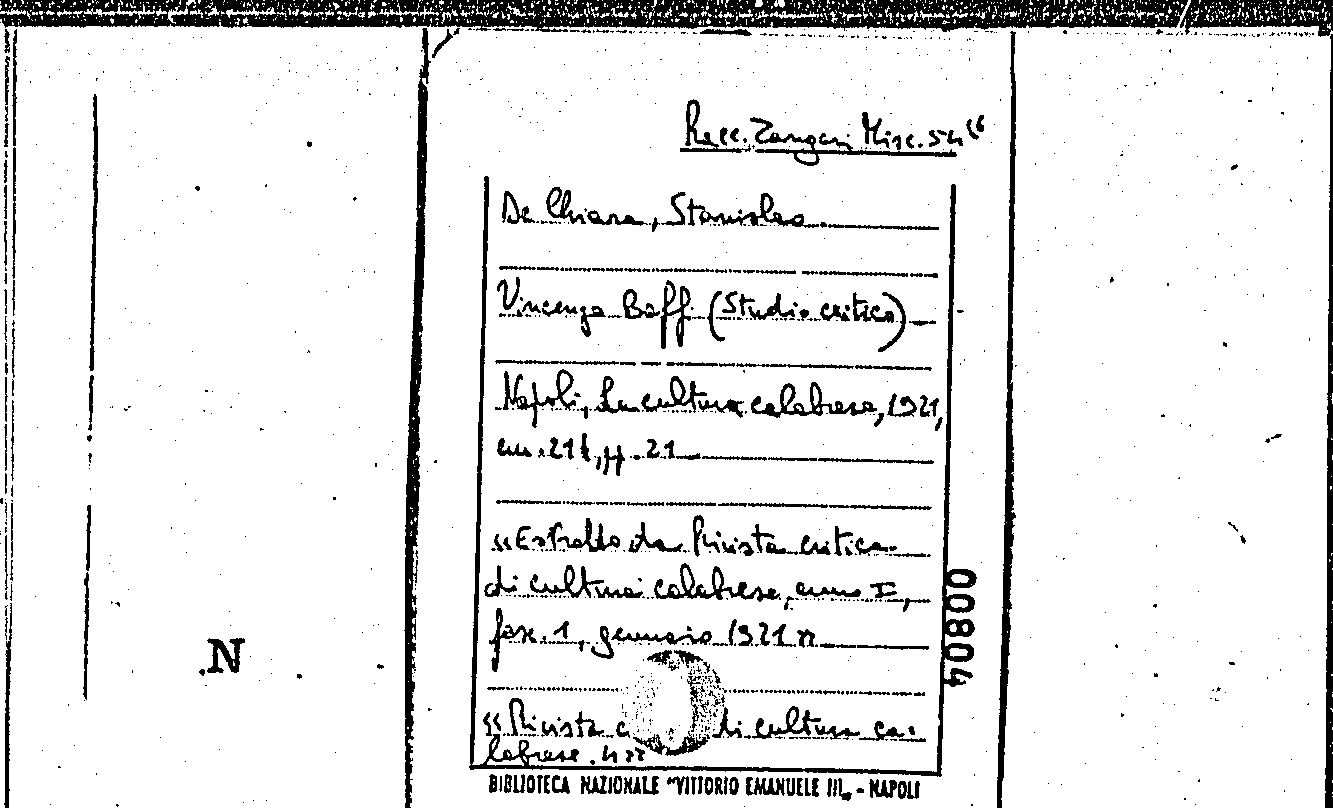 Racc. Zangari Misc. 54⁽⁶
De Chiara, Stanislao
Vincenzo Baffi (Studio critico)
Napoli, La cultura calabrese, 1921,
in pp. 21
«Estratto da Rivista critica
di cultura calabrese, anno I,
fasc. 1, gennaio 1921»
«Rivista di cultura ca-
labrese. 4»
00804
.N
BIBLIOTECA NAZIONALE "VITTORIO EMANUELE III„ - NAPOLI